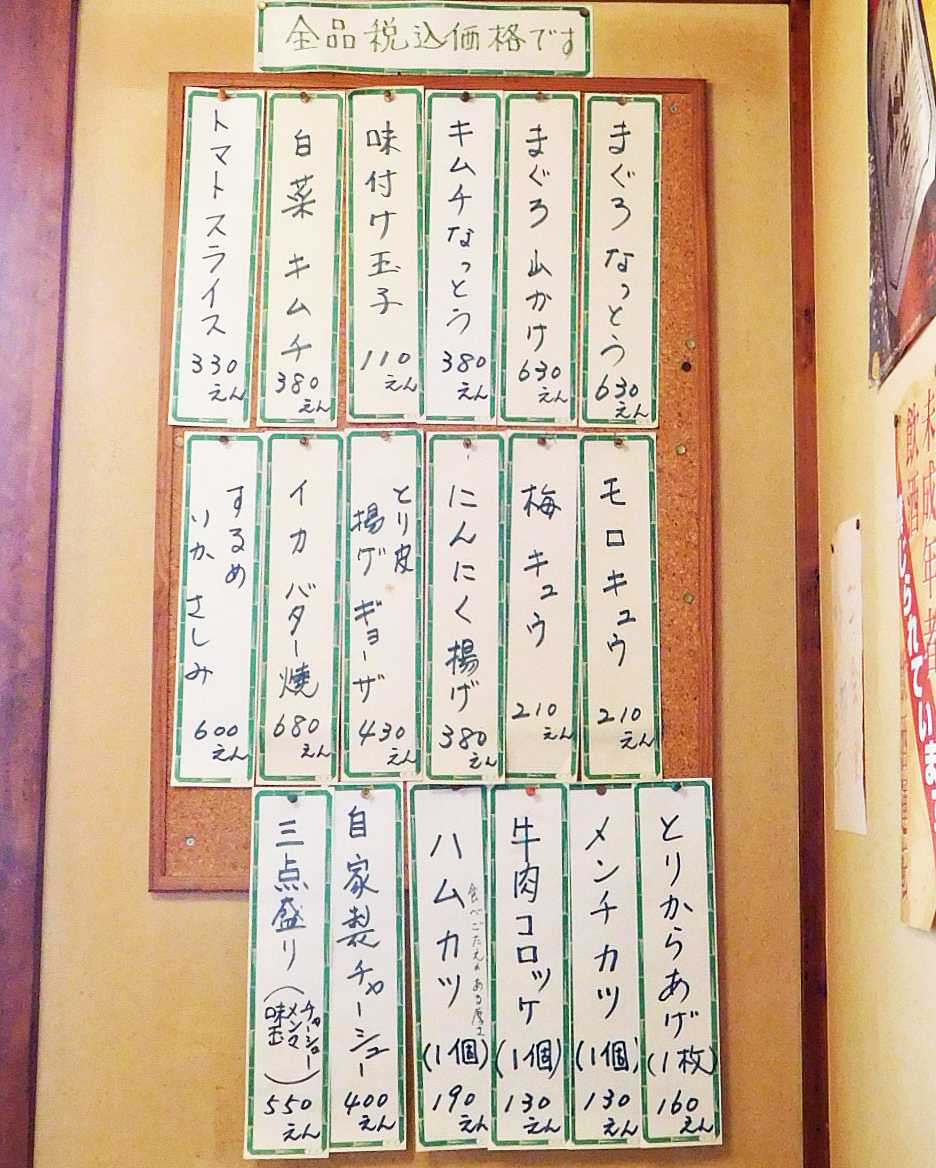 全品税込価格です
まぐろなっとう
630
えん
まぐろ山かけ
630
えん
キムチなっとう
380
えん
味付け玉子
110
えん
白菜キムチ
380
えん
トマトスライス
330
えん
モロキュウ
210
えん
梅キュウ
210
えん
にんにく揚げ
380
えん
とり皮
揚げギョーザ
430
えん
イカバター焼
680
えん
するめ
いかさしみ
600
えん
とりからあげ(1枚)
160
えん
メンチカツ(1個)
130
えん
牛肉コロッケ(1個)
130
えん
ハムカツ(1個)
食べごたえのある厚さ
190
えん
自家製チャーシュー
400
えん
三点盛り(チャーシュー
メンマ
味玉)
550
えん
未成年者
飲酒
じられています